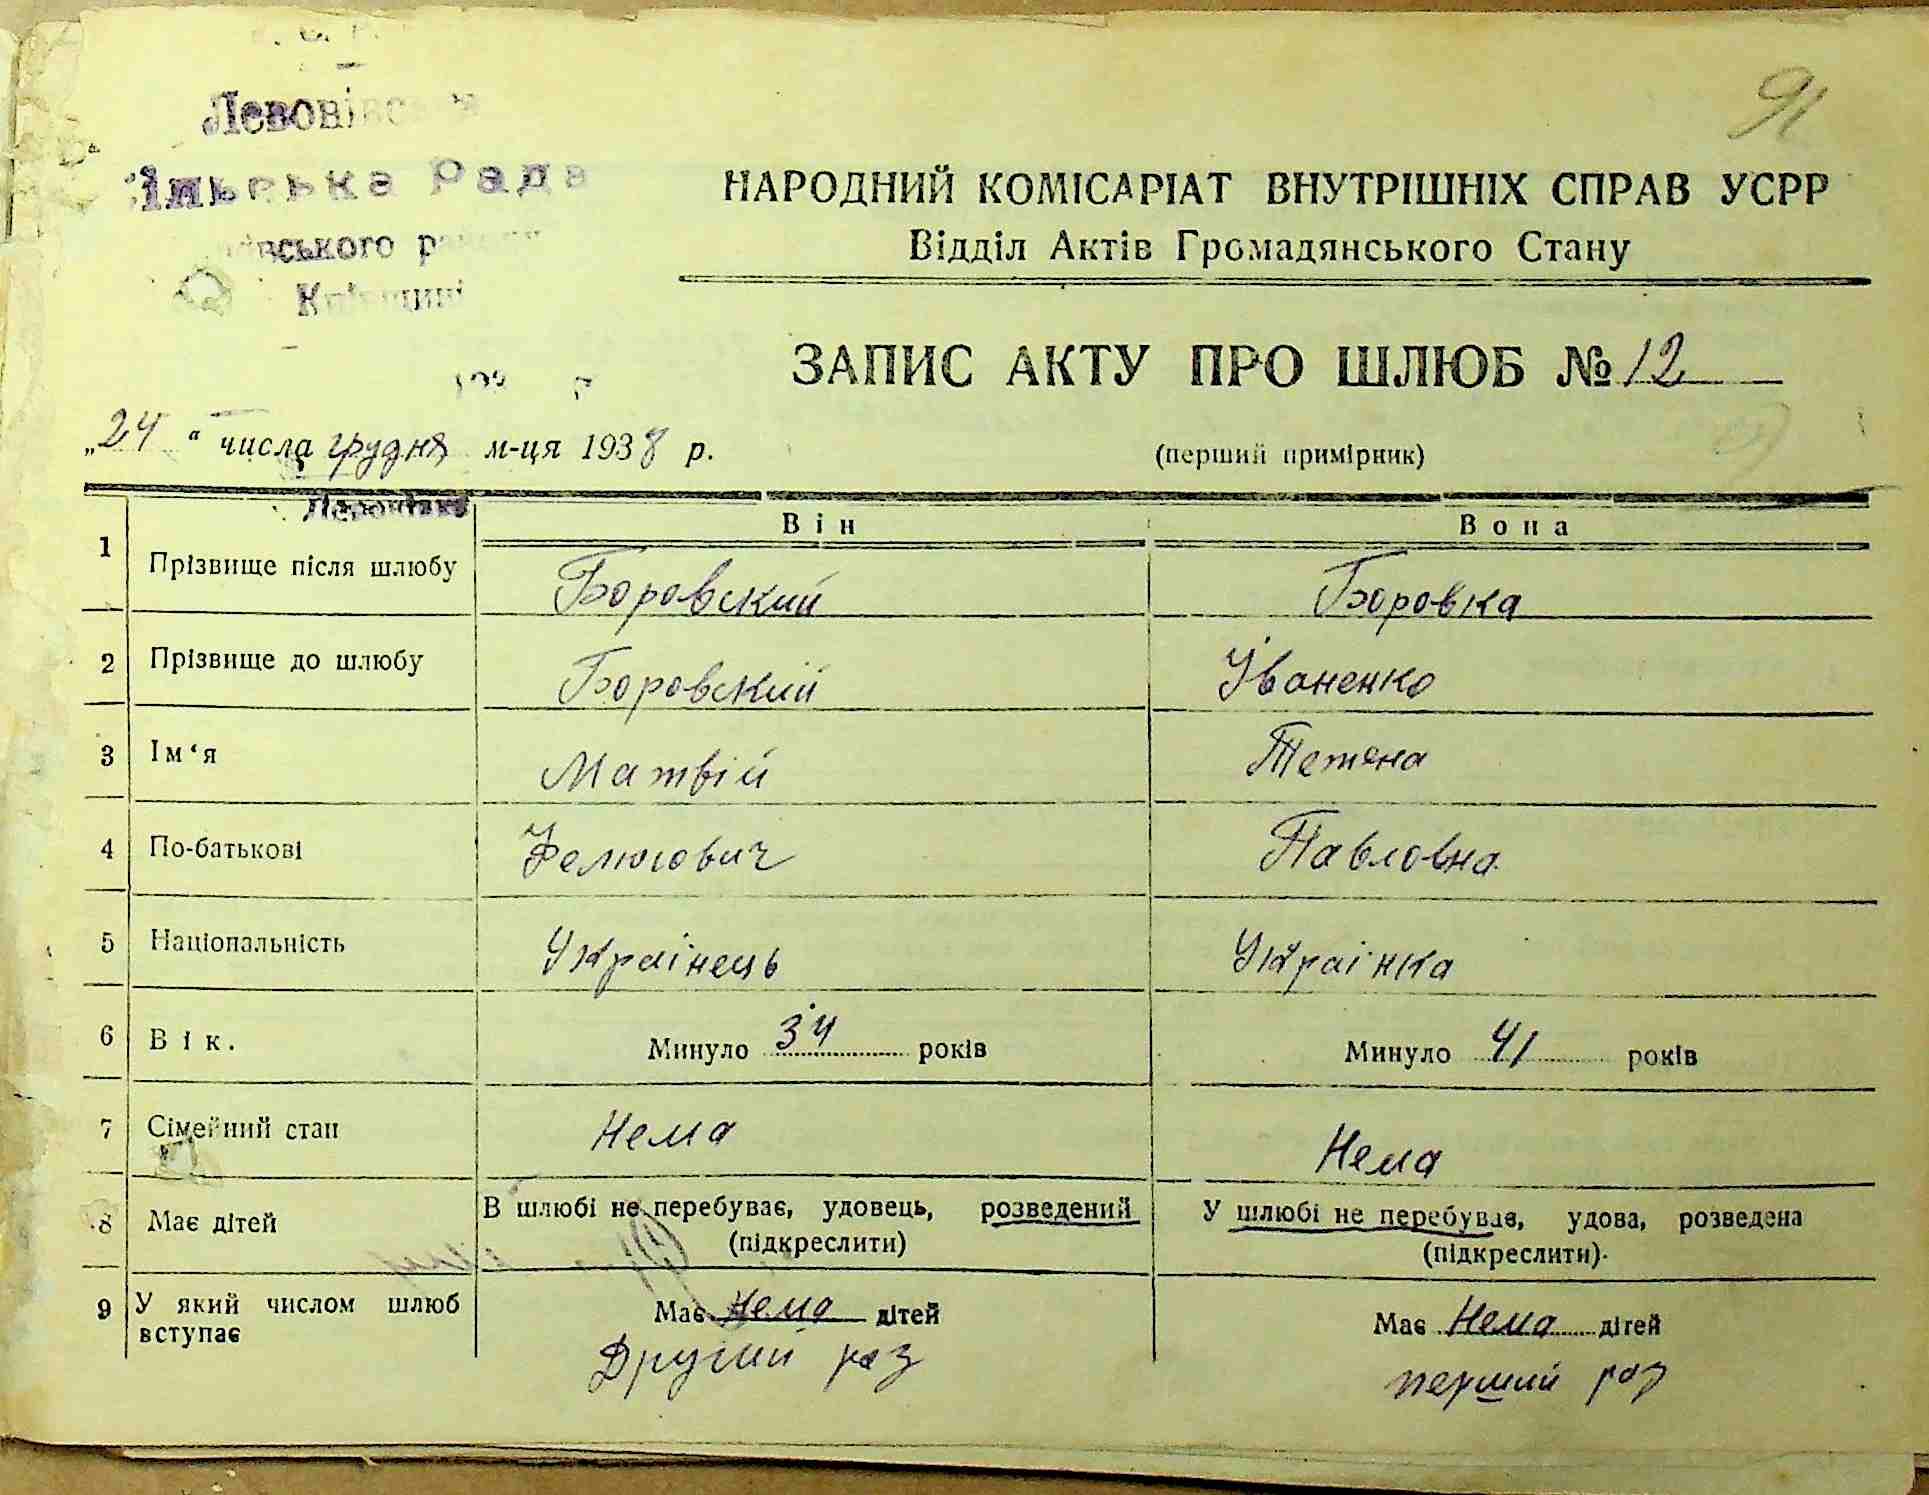 91
Рада
НАРОДНИЙ КОМІСАРІАТ ВНУТРІШНІХ СПРАВ УСРР
Відділ Актів Громадянського Стану
ЗАПИС АКТУ ПРО ШЛЮБ № 12
„24“ числа грудня м-ця 1938 р.
(перший примірник)
Він Вона
1 Прізвище після шлюбу Боровский Боровка
2 Прізвище до шлюбу Боровский Іваненко
3 Ім‘я Матвій Тетяна
4 По-батькові Павловна
5 Національність Украінець Украінка
6 Вік. Минуло 34 років Минуло 41 років
7 Сімейний стан Нема Нема
8 Має дітей В шлюбі не перебуває, удовець, розведений У шлюбі не перебуває, удова, розведена
(підкреслити) (підкреслити).
9 У який числом шлюб вступає Має Нема дітей Має Нема дітей
Другий раз перший раз